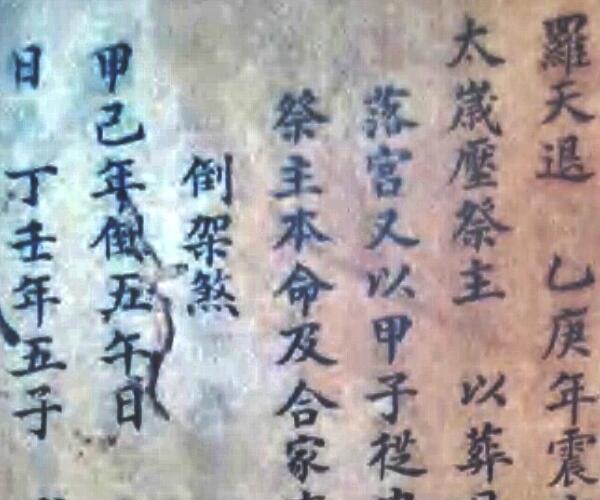 羅天退 乙庚年震
太歲壓祭主 以葬
落宮又以甲子從
祭主本命及合家
倒架煞
甲己年倒五午日
日 丁壬年五子